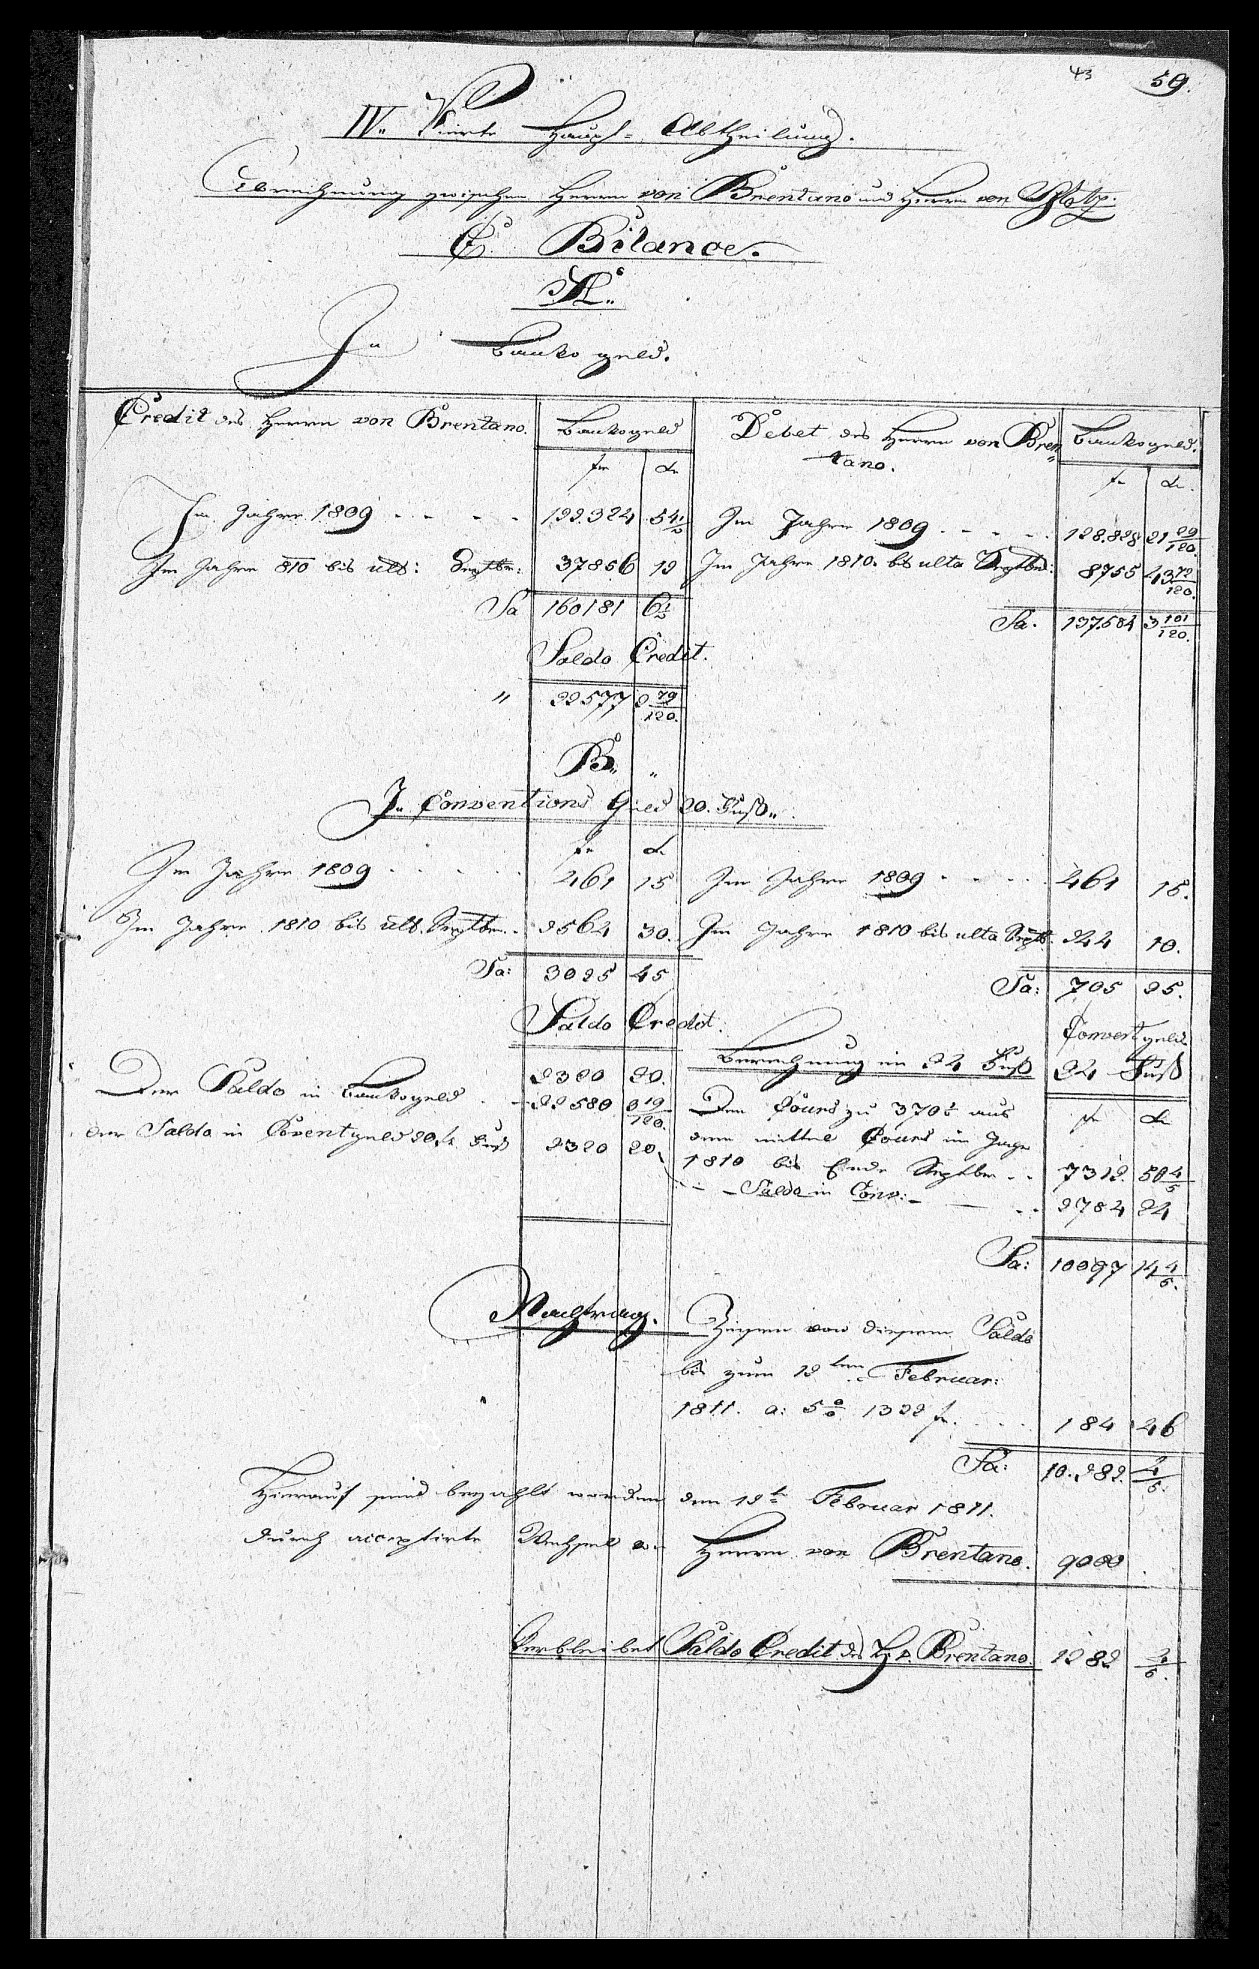 43 59.
IV. Vierte Haupt-Abtheilung.
Abrechnung zwischen Herrn von Brentano und Herrn von
C. Bilance.
A.
In Banko geld.
Credit des Herrn von Brentano. Bankogeld
fr xr
Im Jahre 1809 . . . . 122324 54 1/2
Im Jahre 810 bis ult: Septbr: 37856 12
Sa 160181 6 1/2
Saldo Credit.
" 22577 2 79/120.
Debet des Herrn von Bren- Bankogeld.
tano. fr xr.
Im Jahre 1809 . . . . 128.828 21 29/120.
Im Jahre 1810. bis ulta Septbr: 8755 43 72/120.
Sa. 137584 3 101/120.
B. "
In Conventions Geld 20. Fuß "
fr xr
Im Jahre 1809 . . . . . 461 15
Im Jahre 1810 bis ult. Septbr. . 2564 30.
Sa: 3025 45
Saldo Credit.
2320 20.
Im Jahre 1809 . . . . 461 15.
Im Jahre 1810 bis ulta Septb. 244 10.
Sa: 705 25.
Der Saldo in Bankogeld . . 22580 2 19/120.
der Saldo in Convent geld 20.r Fuß 2320 20.
Convent geld
Berechnung im 24 Fuß 24 Fuß
Den Cours zu 370 aus fr xr
dem mittel Cours im Jahre
1810 bis Ende Septbr . . 7312. 50 4/5
Saldo in Conv: . . 2784 24
Sa: 10097 14 4/5.
Nachtrag. Zinsen von diesem Saldo
bis zum 12ten Februar:
1811. a: 5 0/0 1322 fr. . . . 184 46
Sa: 10.282. 4/5.
Hierauf sind bezahlt worden den 12t Februar 1811.
durch acceptirte Wechsel v. Herrn von Brentano. 9000 .
Verbleibet Saldo Credit des H. v. Brentano. 1282 4/5.